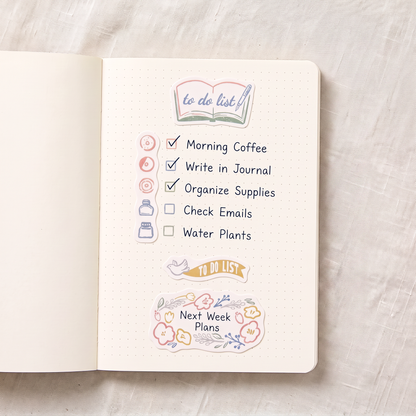 to do list
Morning Coffee
Write in Journal
Organize Supplies
Check Emails
Water Plants
TO DO LIST
Next Week
Plans